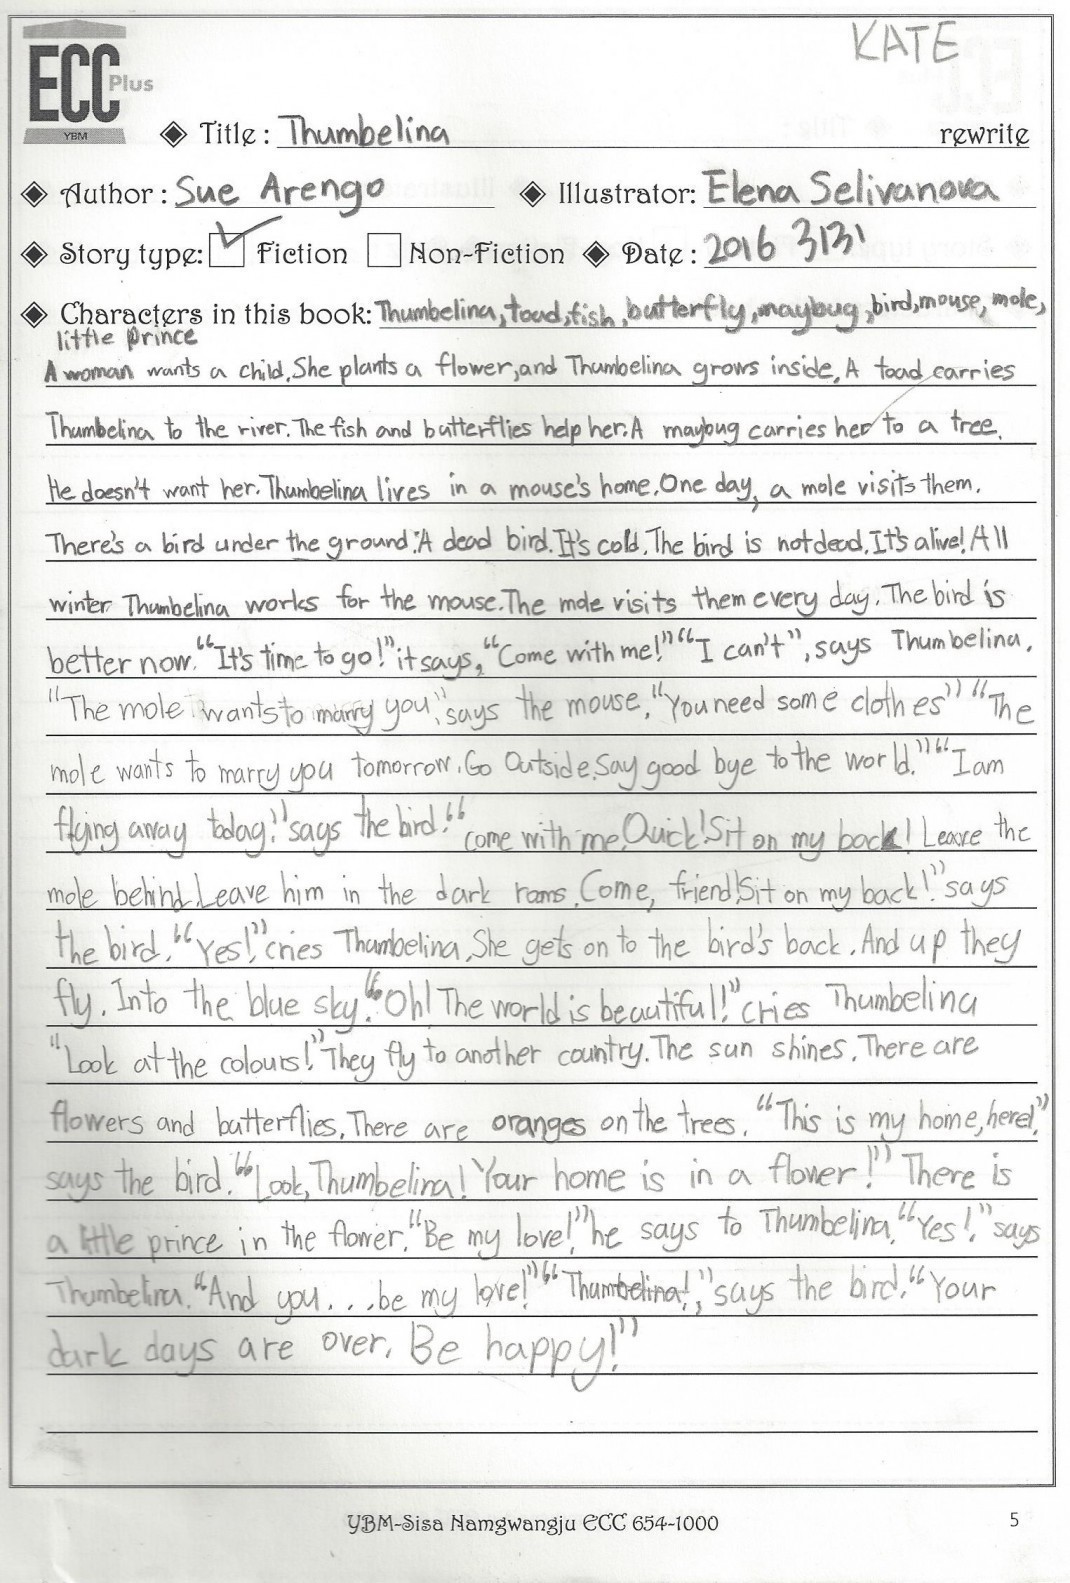 KATE
ECC Plus
YBM
Title : Thumbelina rewrite
Author : Sue Arengo Illustrator: Elena Selivanova
Story type: Fiction Non-Fiction Date : 2016 3131
Characters in this book: Thumbelina, toad, fish, butterfly, maybug, bird, mouse, mole,
little prince
A woman wants a child. She plants a flower, and Thumbelina grows inside. A toad carries
Thumbelina to the river. The fish and butterflies help her. A maybug carries her to a tree.
He doesn't want her. Thumbelina lives in a mouse's home. One day, a mole visits them.
There's a bird under the ground. A dead bird. It's cold. The bird is not dead. It's alive! All
winter Thumbelina works for the mouse. The mole visits them every day. The bird is
better now. "It's time to go!" it says, "Come with me!" "I can't", says Thumbelina.
"The mole wants to marry you", says the mouse. "You need some clothes" "The
mole wants to marry you tomorrow. Go Outside. Say good bye to the world." "I am
flying away today!" says the bird. "come with me. Quick! Sit on my back! Leave the
mole behind. Leave him in the dark roms. Come, friend! Sit on my back!" says
the bird. "Yes!" cries Thumbelina. She gets on to the bird's back. And up they
fly. Into the blue sky. "Oh! The world is beautiful!" cries Thumbelina
"Look at the colours!" They fly to another country. The sun shines. There are
flowers and butterflies. There are oranges on the trees. "This is my home, here!",
says the bird. "Look, Thumbelina! Your home is in a flower!" There is
a little prince in the flower. "Be my love!" he says to Thumbelina. "Yes!" says
Thumbelina. "And you... be my love!" "Thumbelina!", says the bird. "Your
dark days are over. Be happy!"
YBM-Sisa Namgwangju ECC 654-1000
5